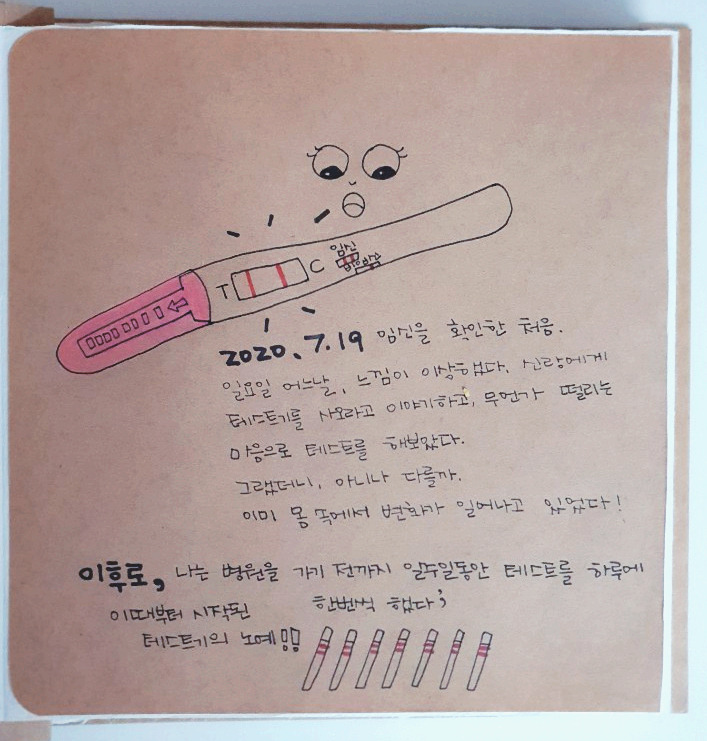 임신
비임신
T
C
2020.7.19 임신을 확인한 처음.
일요일 어느날, 느낌이 이상했다. 신랑에게
테스트기를 사오라고 이야기하고, 무언가 떨리는
마음으로 테스트를 해보았다.
그랬더니, 아니나 다를까.
이미 몸 속에서 변화가 일어나고 있었다!
이후로, 나는 병원을 가기 전까지 일주일동안 테스트를 하루에
한번씩 했다;
이때부터 시작된
테스트기의 노예!!